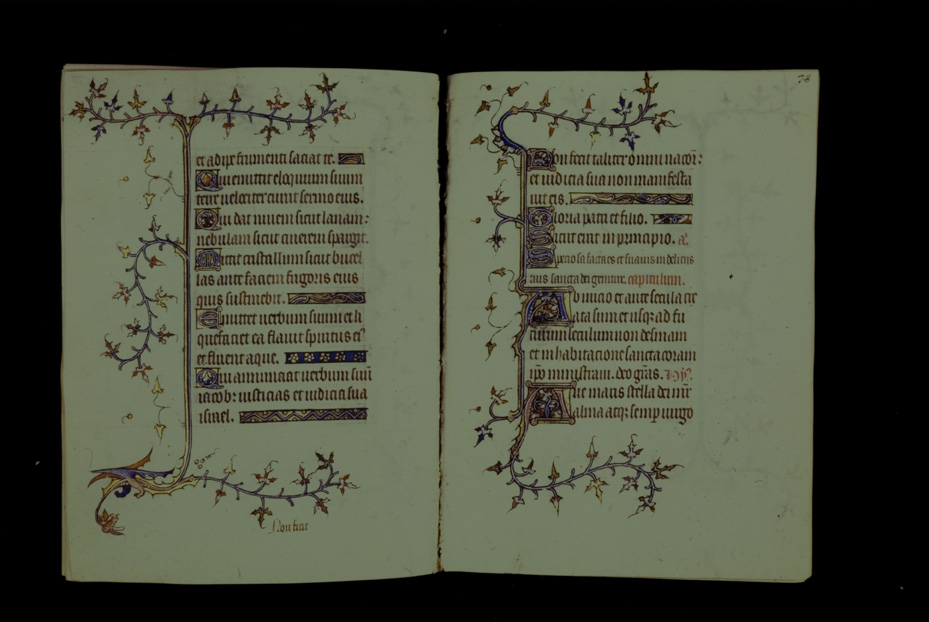 et adipe frumenti saciat te.
Qui emittit eloquium suum
terre velociter currit sermo eius.
Qui dat nivem sicut lanam:
nebulam sicut cinerem spargit.
Mittit cristallum sicut bucel
las ante faciem frigoris eius
quis sustinebit.
Emittet verbum suum et li
quefaciet ea flavit spiritus ei
et fluent aque.
Qui annunciat verbum suu
iacob: iusticias et iudicia sua
israel.
Non fecit
78
Non fecit taliter omni nacoi:
et iudicia sua non manifesta
vit eis.
Gloria patri et filio.
Sicut erat in principio. a.
Speciosa facta es et suavis in deliciis
tuis sancta dei genitrix. capitulum.
Ab inicio et ante secula cre
ata sum et usq; ad fu
turum seculum non desinam
et in habitacione sancta coram
ipo ministravi. deo gras.
Ave maris stella dei mr
alma atq; semp virgo